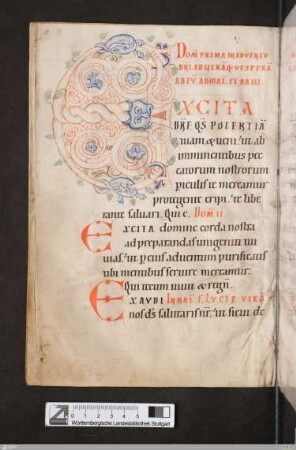 DOM̄ PRIMA IN ADVENTV
DNI AD LITERAQ· VESPERA
AD EV̄. AD MAT̄. ET AD III.
EXCITA
DÑE QS̄ POTENTIĀ
tuam & ueni. ut ab
imminentibus pec
catorum nostrorum
piculis te mereamur
protegente eripi. te libe
rante saluari. Qui c. Dom II
Excita domine corda nostra
ad preparandas unigeniti tui
uias. ut p eius aduentum purificatis
tibi mentibus seruire mereamur.
Qui tecum uiuit & regn̄.
EXAUDI In nat̄ S. LUCIE VIRG̅
nos ds̄ salutaris nr̄. ut sicut de
Württembergische Landesbibliothek Stuttgart